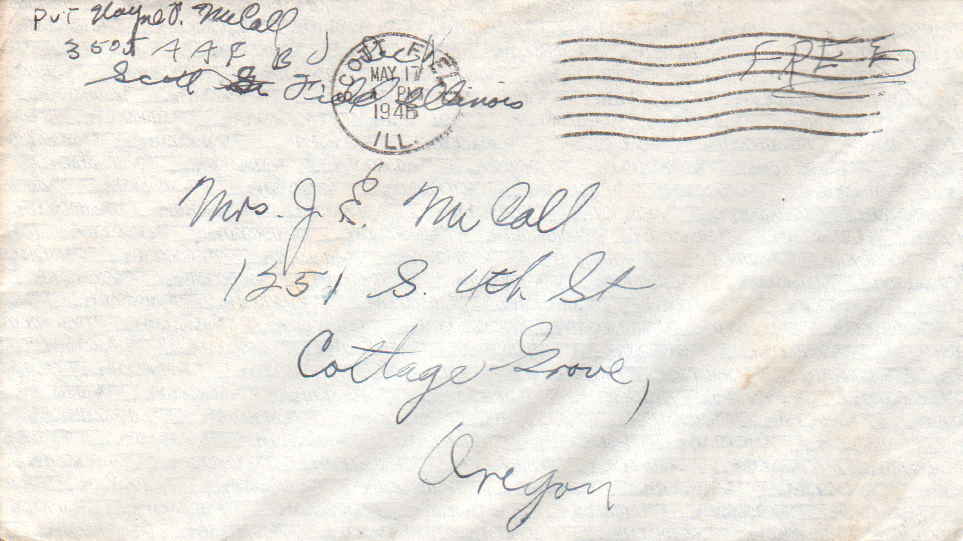 Pvt Wayne D. McCall
3505 AAF B U
Scott Field Illinois
SCOTT FIELD
MAY 17
PM
1946
ILL.
FREE
Mrs. J. E. McCall
1251 S. 4th St
Cottage Grove,
Oregon